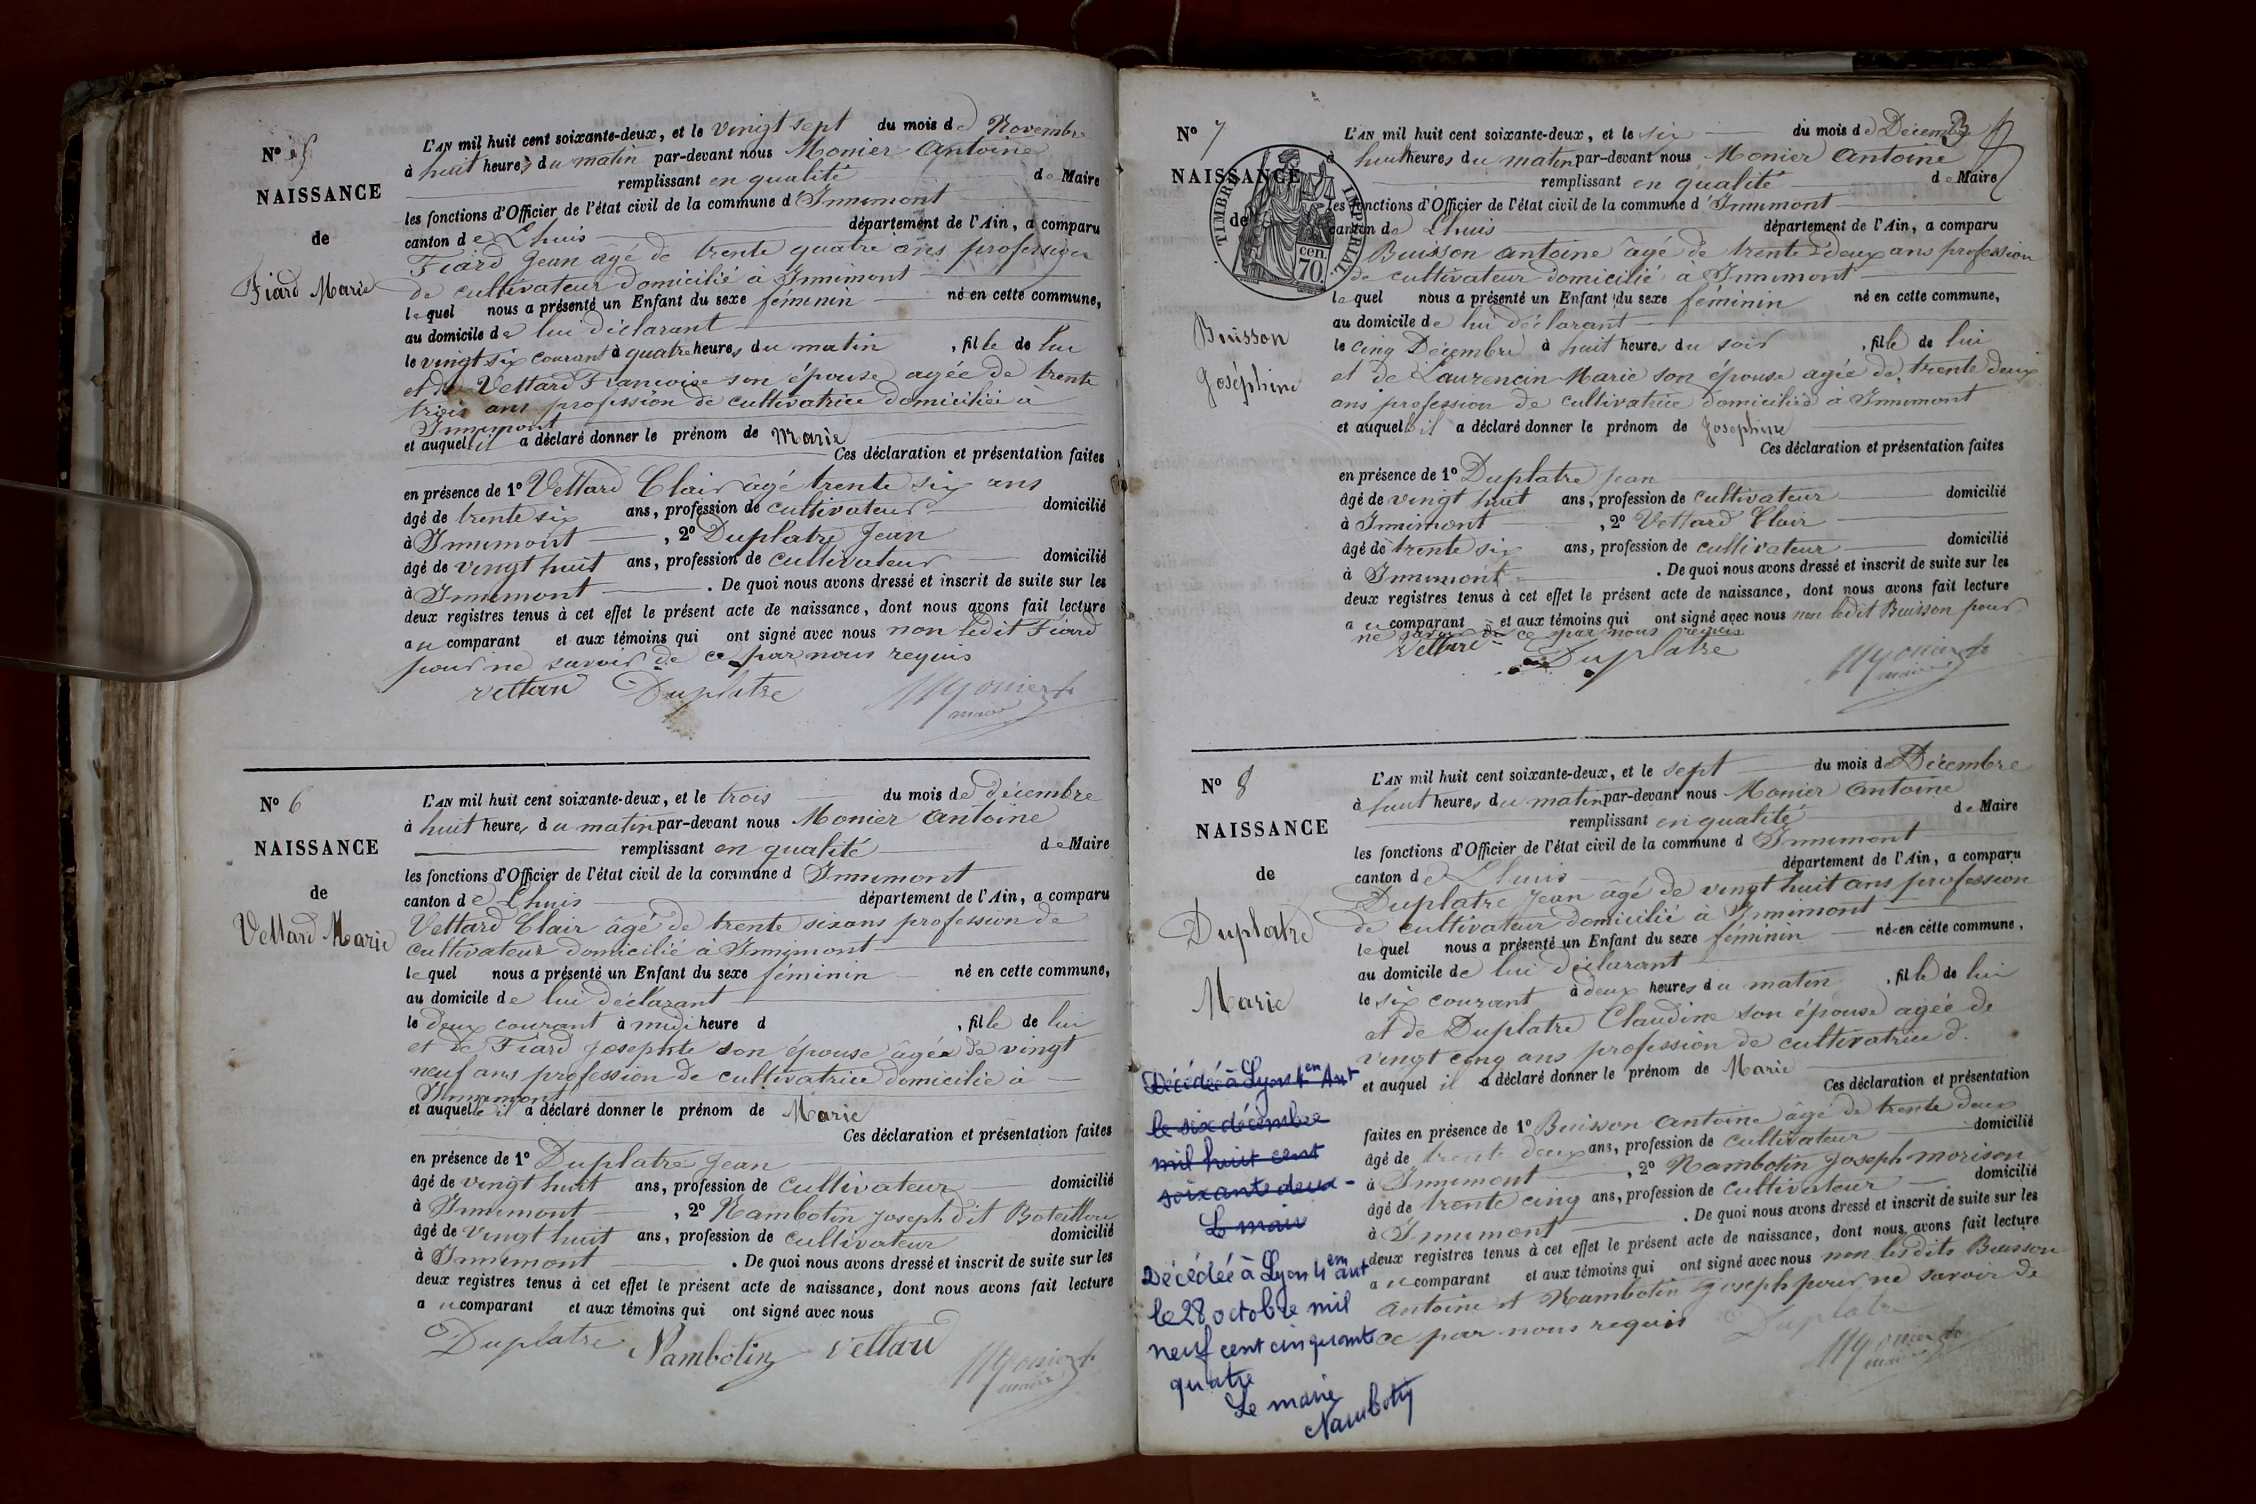 N° 5
NAISSANCE
de
Fiard Marie
L'AN mil huit cent soixante-deux, et le vingt sept du mois de Novembre
à huit heures du matin par-devant nous Monier Antoine
remplissant en qualité de Maire
les fonctions d'Officier de l'état civil de la commune d'Innimont
canton de Lhuis département de l'Ain, a comparu
Fiard Jean âgé de trente quatre ans profession
de cultivateur domicilié à Innimont
lequel nous a présenté un Enfant du sexe féminin né en cette commune,
au domicile de lui déclarant
le vingt six courant à quatre heures du matin, fille de lui
et de Vettard Francoise son épouse agée de trente
trois ans profession de cultivatrice domiciliée à
Innimont
et auquel il a déclaré donner le prénom de Marie
Ces déclaration et présentation faites
en présence de 1° Vettard Clair âgé trente six ans
âgé de trente six ans, profession de cultivateur domicilié
à Innimont, 2° Duplatre Jean
âgé de vingt huit ans, profession de cultivateur domicilié
à Innimont. De quoi nous avons dressé et inscrit de suite sur les
deux registres tenus à cet effet le présent acte de naissance, dont nous avons fait lecture
au comparant et aux témoins qui ont signé avec nous non ledit Fiard
pour ne savoir de ce par nous requis
Vettard Duplatre Monier
maire
N° 6
NAISSANCE
de
Vettard Marie
L'AN mil huit cent soixante-deux, et le trois du mois de décembre
à huit heures du matin par-devant nous Monier Antoine
remplissant en qualité de Maire
les fonctions d'Officier de l'état civil de la commune d Innimont
canton de Lhuis département de l'Ain, a comparu
Vettard Clair âgé de trente six ans profession de
cultivateur domicilié à Innimont
lequel nous a présenté un Enfant du sexe féminin né en cette commune,
au domicile de lui déclarant
le deux courant à midi heure d , fille de lui
et de Fiard Josephte son épouse âgée de vingt
neuf ans profession de cultivatrice domicilié à
Innimont
et auquelle il a déclaré donner le prénom de Marie
Ces déclaration et présentation faites
en présence de 1° Duplatre Jean
âgé de vingt huit ans, profession de cultivateur domicilié
à Innimont, 2° Nambotin Joseph dit
âgé de vingt huit ans, profession de cultivateur domicilié
à Innimont. De quoi nous avons dressé et inscrit de suite sur les
deux registres tenus à cet effet le présent acte de naissance, dont nous avons fait lecture
au comparant et aux témoins qui ont signé avec nous
Duplatre Nambotin Vettard Monier
maire
N° 7
NAISSANCE
de
TIMBRE IMPERIAL
70 cen.
Buisson
Joséphine
L'AN mil huit cent soixante-deux, et le six du mois de Décembre
à huit heures du matin par-devant nous Monier Antoine
remplissant en qualité de Maire
les fonctions d'Officier de l'état civil de la commune d'Innimont
canton de Lhuis département de l'Ain, a comparu
Buisson Antoine âgé de trente deux ans profession
de cultivateur domicilié a Innimont
lequel nous a présenté un Enfant du sexe féminin né en cette commune,
au domicile de lui déclarant
le cinq Décembre à huit heures du soir, fille de lui
et de Laurencin Marie son épouse agée de trente deux
ans profession de cultivatrice domicilié à Innimont
et auquelle il a déclaré donner le prénom de Josephine
Ces déclaration et présentation faites
en présence de 1° Duplatre Jean
âgé de vingt huit ans, profession de cultivateur domicilié
à Innimont, 2° Vettard Clair
âgé de trente six ans, profession de cultivateur domicilié
à Innimont. De quoi nous avons dressé et inscrit de suite sur les
deux registres tenus à cet effet le présent acte de naissance, dont nous avons fait lecture
au comparant et aux témoins qui ont signé avec nous non ledit Buisson pour
ne savoir de ce par nous requis
Vettard Duplatre Monier
maire
N° 8
NAISSANCE
de
Duplatre
Marie
L'AN mil huit cent soixante-deux, et le sept du mois de Décembre
à huit heures du matin par-devant nous Monier Antoine
remplissant en qualité de Maire
les fonctions d'Officier de l'état civil de la commune d Innimont
canton de Lhuis département de l'Ain, a comparu
Duplatre Jean âgé de vingt huit ans profession
de cultivateur domicilié à Innimont
lequel nous a présenté un Enfant du sexe féminin né en cette commune,
au domicile de lui déclarant
le six courant à deux heures du matin, fille de lui
et de Duplatre Claudine son épouse agée de
vingt cinq ans profession de cultivatrice d.
et auquel il a déclaré donner le prénom de Marie
Ces déclaration et présentation
faites en présence de 1° Buisson Antoine âgé de trente deux
âgé de trente deux ans, profession de cultivateur domicilié
à Innimont, 2° Nambotin Joseph morison
âgé de trente cinq ans, profession de cultivateur domicilié
à Innimont. De quoi nous avons dressé et inscrit de suite sur les
deux registres tenus à cet effet le présent acte de naissance, dont nous avons fait lecture
au comparant et aux témoins qui ont signé avec nous non lesdits Buisson
Antoine et Nambotin Joseph pour ne savoir de
ce par nous requis Duplatre
Monier
maire
Décédée à Lyon 4en Art
le six décembre
mil huit cent
soixante deux -
Le maire
Décédée à Lyon 4em art
le 28 octobre mil
neuf cent cinquante
quatre
Le maire
Nambotin